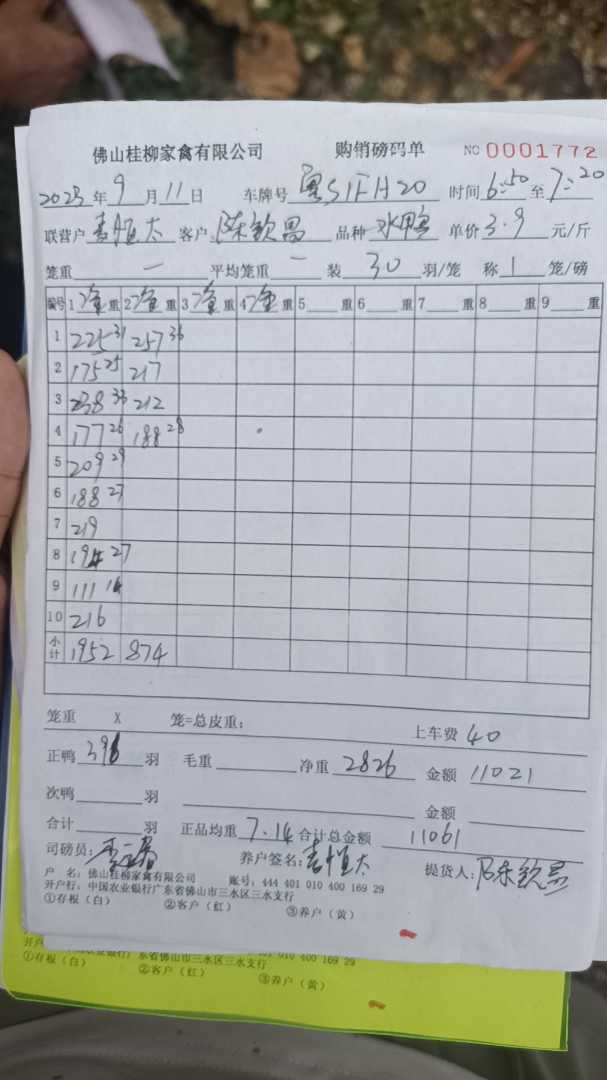 佛山桂柳家禽有限公司 购销磅码单 NO 0001772
2023年9月11日 车牌号 粤S1FH20 时间6:50至7:20
联营户 恒太 客户 陈钦昌 品种 水鸭 单价3.9元/斤
笼重 — 平均笼重 — 装 30 羽/笼 称 1 笼/磅
编号 1净重 2净重 3净重 4净重 5 重 6 重 7 重 8 重 9 重
1 225 31 257 36
2 175 25 217
3 238 33 212
4 177 26 188 28
5 209 29
6 188 27
7 219
8 194 27
9 111 14
10 216
小计 1952 874
笼重 X 笼=总皮重: 上车费 40
正鸭 396 羽 毛重 净重 2826 金额 11021
次鸭 羽 金额
合计 羽 正品均重 7.14 合计总金额 11061
司磅员: 养户签名: 恒太 提货人: 陈钦昌
户 名: 佛山桂柳家禽有限公司 账号: 444 401 010 400 169 29
开户行: 中国农业银行广东省佛山市三水区三水支行
①存根（白） ②客户（红） ③养户（黄）
东省佛山市三水区三水支行 010 400 169 29
①存根（白） ②客户（红） ③养户（黄）